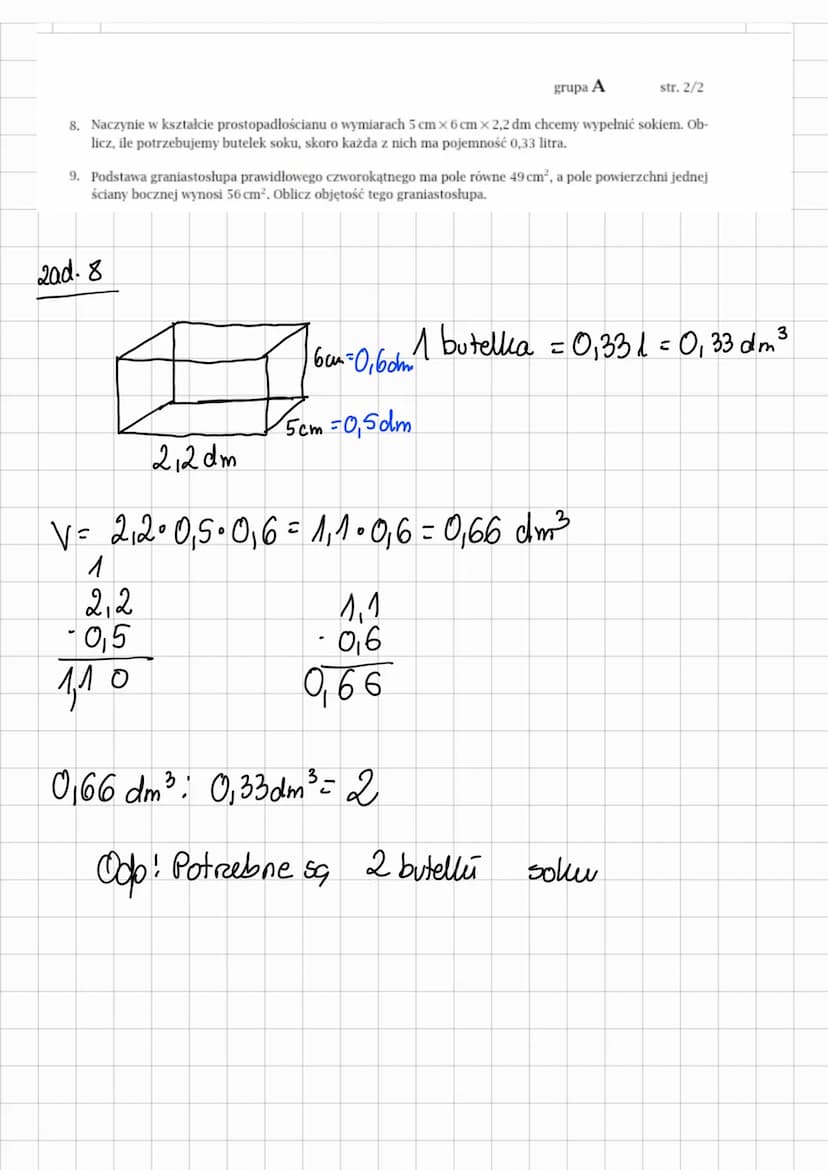 grupa A str. 2/2
8. Naczynie w kształcie prostopadłościanu o wymiarach 5 cm × 6 cm × 2,2 dm chcemy wypełnić sokiem. Ob-
licz, ile potrzebujemy butelek soku, skoro każda z nich ma pojemność 0,33 litra.
9. Podstawa graniastosłupa prawidłowego czworokątnego ma pole równe 49 cm², a pole powierzchni jednej
ściany bocznej wynosi 56 cm². Oblicz objętość tego graniastosłupa.
zad. 8
6cm=0,6dm 1 butelka = 0,33 l = 0,33 dm³
5cm =0,5dm
2,2 dm
V= 2,2·0,5·0,6 = 1,1·0,6 = 0,66 dm³
1
2,2 1,1
·0,5 · 0,6
1,10 0,66
0,66 dm³ : 0,33dm³ = 2
Odp! Potrzebne są 2 butelki soku